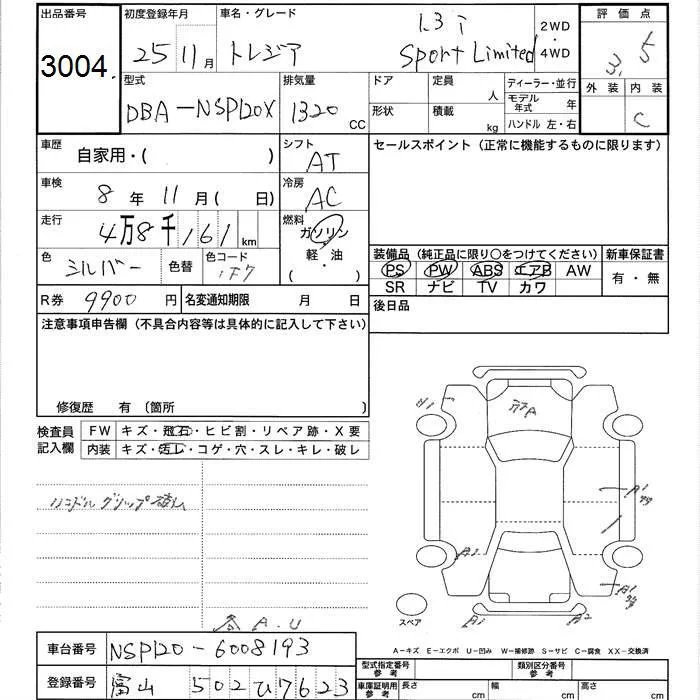 出品番号
3004
初度登録年月
25 11月
車名・グレード
トレジア
1.3 i
Sport Limited
2WD
・
4WD
評価点
3.5
外装 内装
C
型式
DBA-NSP120X
排気量
1320 CC
ドア
形状
定員
人
積載
kg
ディーラー・並行
モデル年式 年
ハンドル 左・右
車歴
自家用・( )
シフト
AT
セールスポイント (正常に機能するものに限ります)
車検
8年 11月 ( 日)
冷房
AC
走行
4万8千161km
燃料
ガソリン
軽・油
( ・ )
色
シルバー
色替
色コード
1F7
装備品 (純正品に限り○をつけてください)
新車保証書
PS PW ABS エアB AW
SR ナビ TV カワ
有・無
R券 9900 円
名変通知期限 月 日
後日品
注意事項申告欄 (不具合内容等は具体的に記入して下さい)
修復歴 有 〔箇所 〕
検査員
記入欄
FW キズ・飛石・ヒビ割・リペア跡・X要
内装 キズ・汚レ・コゲ・穴・スレ・キレ・破レ
ハンドルグリップ破レ
各A.U
A1
A1
A1
A1
A2
スペア
A-キズ E-エクボ U-凹み W-補修跡 S-サビ C-腐食 XX-交換済
車台番号 NSP120-6008193
登録番号 富山 502 ひ 7623
型式指定番号
参考
類別区分番号
車庫証明用
参考
長さ cm
幅 cm
高さ cm